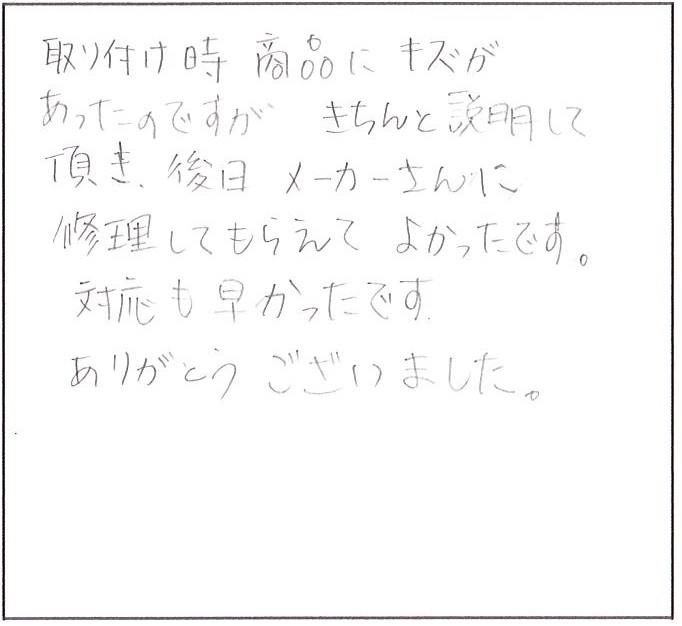 取り付け時 商品に キズが
あったのですが きちんと説明して
頂き、後日 メーカーさんに
修理してもらえて よかったです。
対応も早かったです.
ありがとうございました。